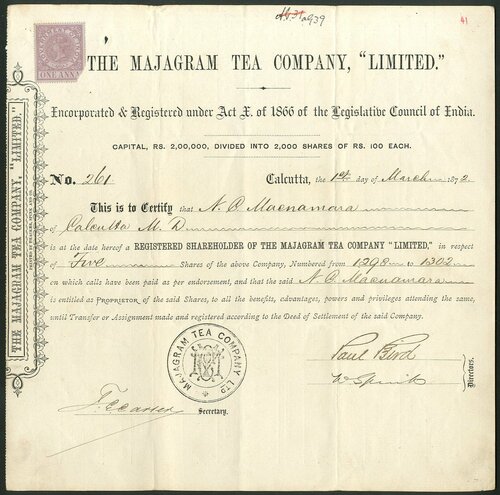 1939
41
GOVERNMENT OF INDIA
ONE ANNA
THE MAJAGRAM TEA COMPANY, "LIMITED."
Incorporated & Registered under Act X. of 1866 of the Legislative Council of India.
CAPITAL, RS. 2,00,000, DIVIDED INTO 2,000 SHARES OF RS. 100 EACH.
No. 261 Calcutta, the 1st day of March 1872
This is to Certify that N. C. Macnamara
of Calcutta M. D
is at the date hereof a REGISTERED SHAREHOLDER OF THE MAJAGRAM TEA COMPANY "LIMITED," in respect
of Five Shares of the above Company, Numbered from 1298 to 1302
on which calls have been paid as per endorsement, and that the said N. C. Macnamara
is entitled as PROPRIETOR of the said Shares, to all the benefits, advantages, powers and privileges attending the same,
until Transfer or Assignment made and registered according to the Deed of Settlement of the said Company.
MAJAGRAM TEA COMPANY LTD
Paul Bird
Directors.
Secretary.
THE MAJAGRAM TEA COMPANY, "LIMITED."